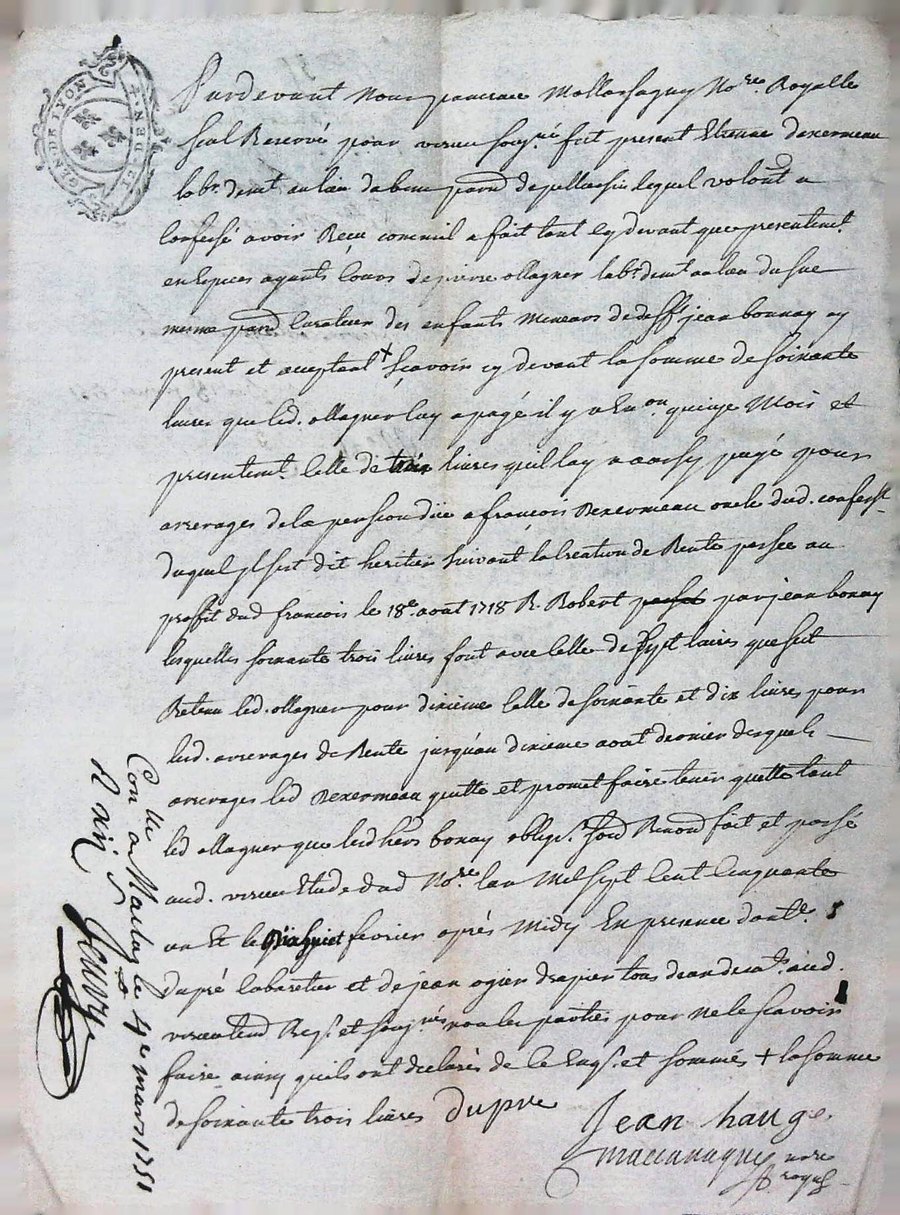 GEN DE LYON
Pardevant Nous Nore. Royalle
Seal Reservé pour virieu soigné. fut present Etienne
labr. demt. au lieu de parse. de pellussin lequel volont. a
Confessé avoir Reçu comme il a fait tant cy devant que presentemt.
en Espices ayants Cours de pierre ollagner labr. demt. au lieu du sue
mesme parse. Curateur des enfants Mineurs de defft. jean bonnay icy
present et acceptant + sçavoir cy devant la somme de soixante
livres que led. ollagner luy a payé il y a Environ quinze Mois et
presentemt. Celle de trois livres quil luy a aussy payé pour
arrerages de la pension düe a françois oncle dud. confesst.
duquel il sest dit heritier suivant la Creation de Rente passée au
profit dud françois le 18e. aoat 1718 R. Robert par jean bonay
lesquelles soixante trois livres font avec Celle de sept livres que seit
Retenu led. ollagner pour dixieme Celle de soixante et dix livres pour
lesd. arrerages de Rente jusquau dixieme aoat dernier desquels
arrerages led quitte et promet faire tenir quitte tant
led ollagner que lesd hers bonay oblig. soud Renond fait et passé
aud. virieu Etude dud Nore. lan Mil sept Cent Cinquante
un Et le fevrier après Midy En presence dant.
dupré Cabaretier et de jean ogier drapier tous deux aud.
virieu Req. et soignés non les parties pour ne le sçavoir
faire ainsy quils ont declarés de Ce Enqs. et sommés + la somme
de soixante trois livres dupre
Jean
nore
royal
Conlle a le 4e mars 1751
R